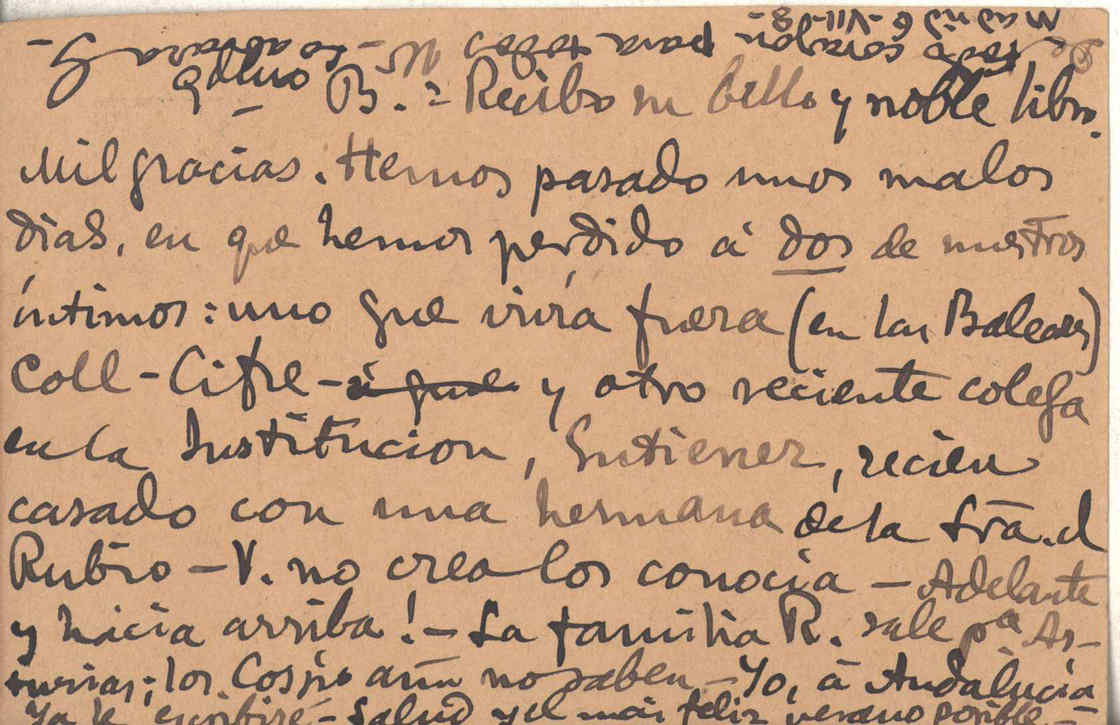 Querido B. = Recibo su bello y noble libro.
Mil gracias. Hemos pasado unos malos
dias, en que hemos perdido á dos de nuestros
íntimos: uno que vivía fuera (en las Baleares)
Coll-Cifre - á que y otro reciente colega
en la Institucion, Gutierrez, recien
casado con una hermana de la Sra. d
Rubio - V. no creo los conocía - Adelante
y hacia arriba! - La familia R. sale pª As-
turias; los Cossío aún no saben - Yo, á Andalucía
Ya le escribiré - Salud y el más feliz verano posible -
De todo corazón para todos - Le abraza G
Madrid 6-VII-08-